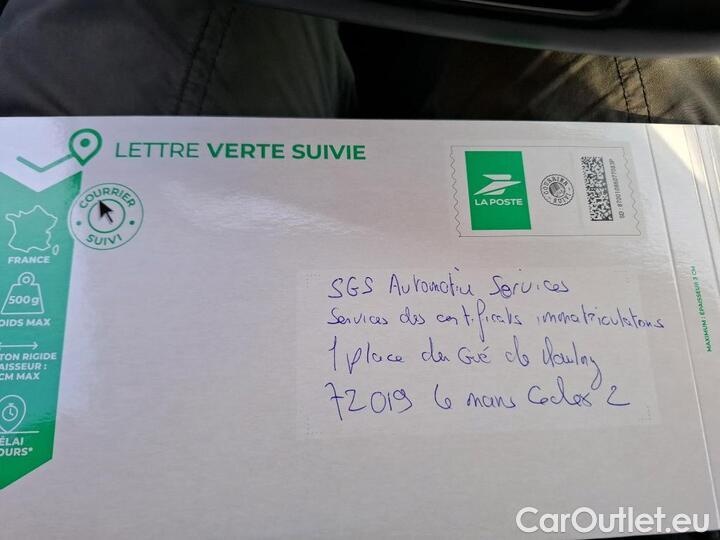 LETTRE VERTE SUIVIE
COURRIER
SUIVI
LA POSTE
COURRIER SUIVI
FRANCE
500g
OIDS MAX
TON RIGIDE
AISSEUR :
CM MAX
ÉLAI
OURS*
SGS Automotive Services
Services des certificats immatriculations
1 place du Gué de Maulny
72019 Le Mans Cedex 2
MAXIMUM : ÉPAISSEUR 3 CM
CarOutlet.eu